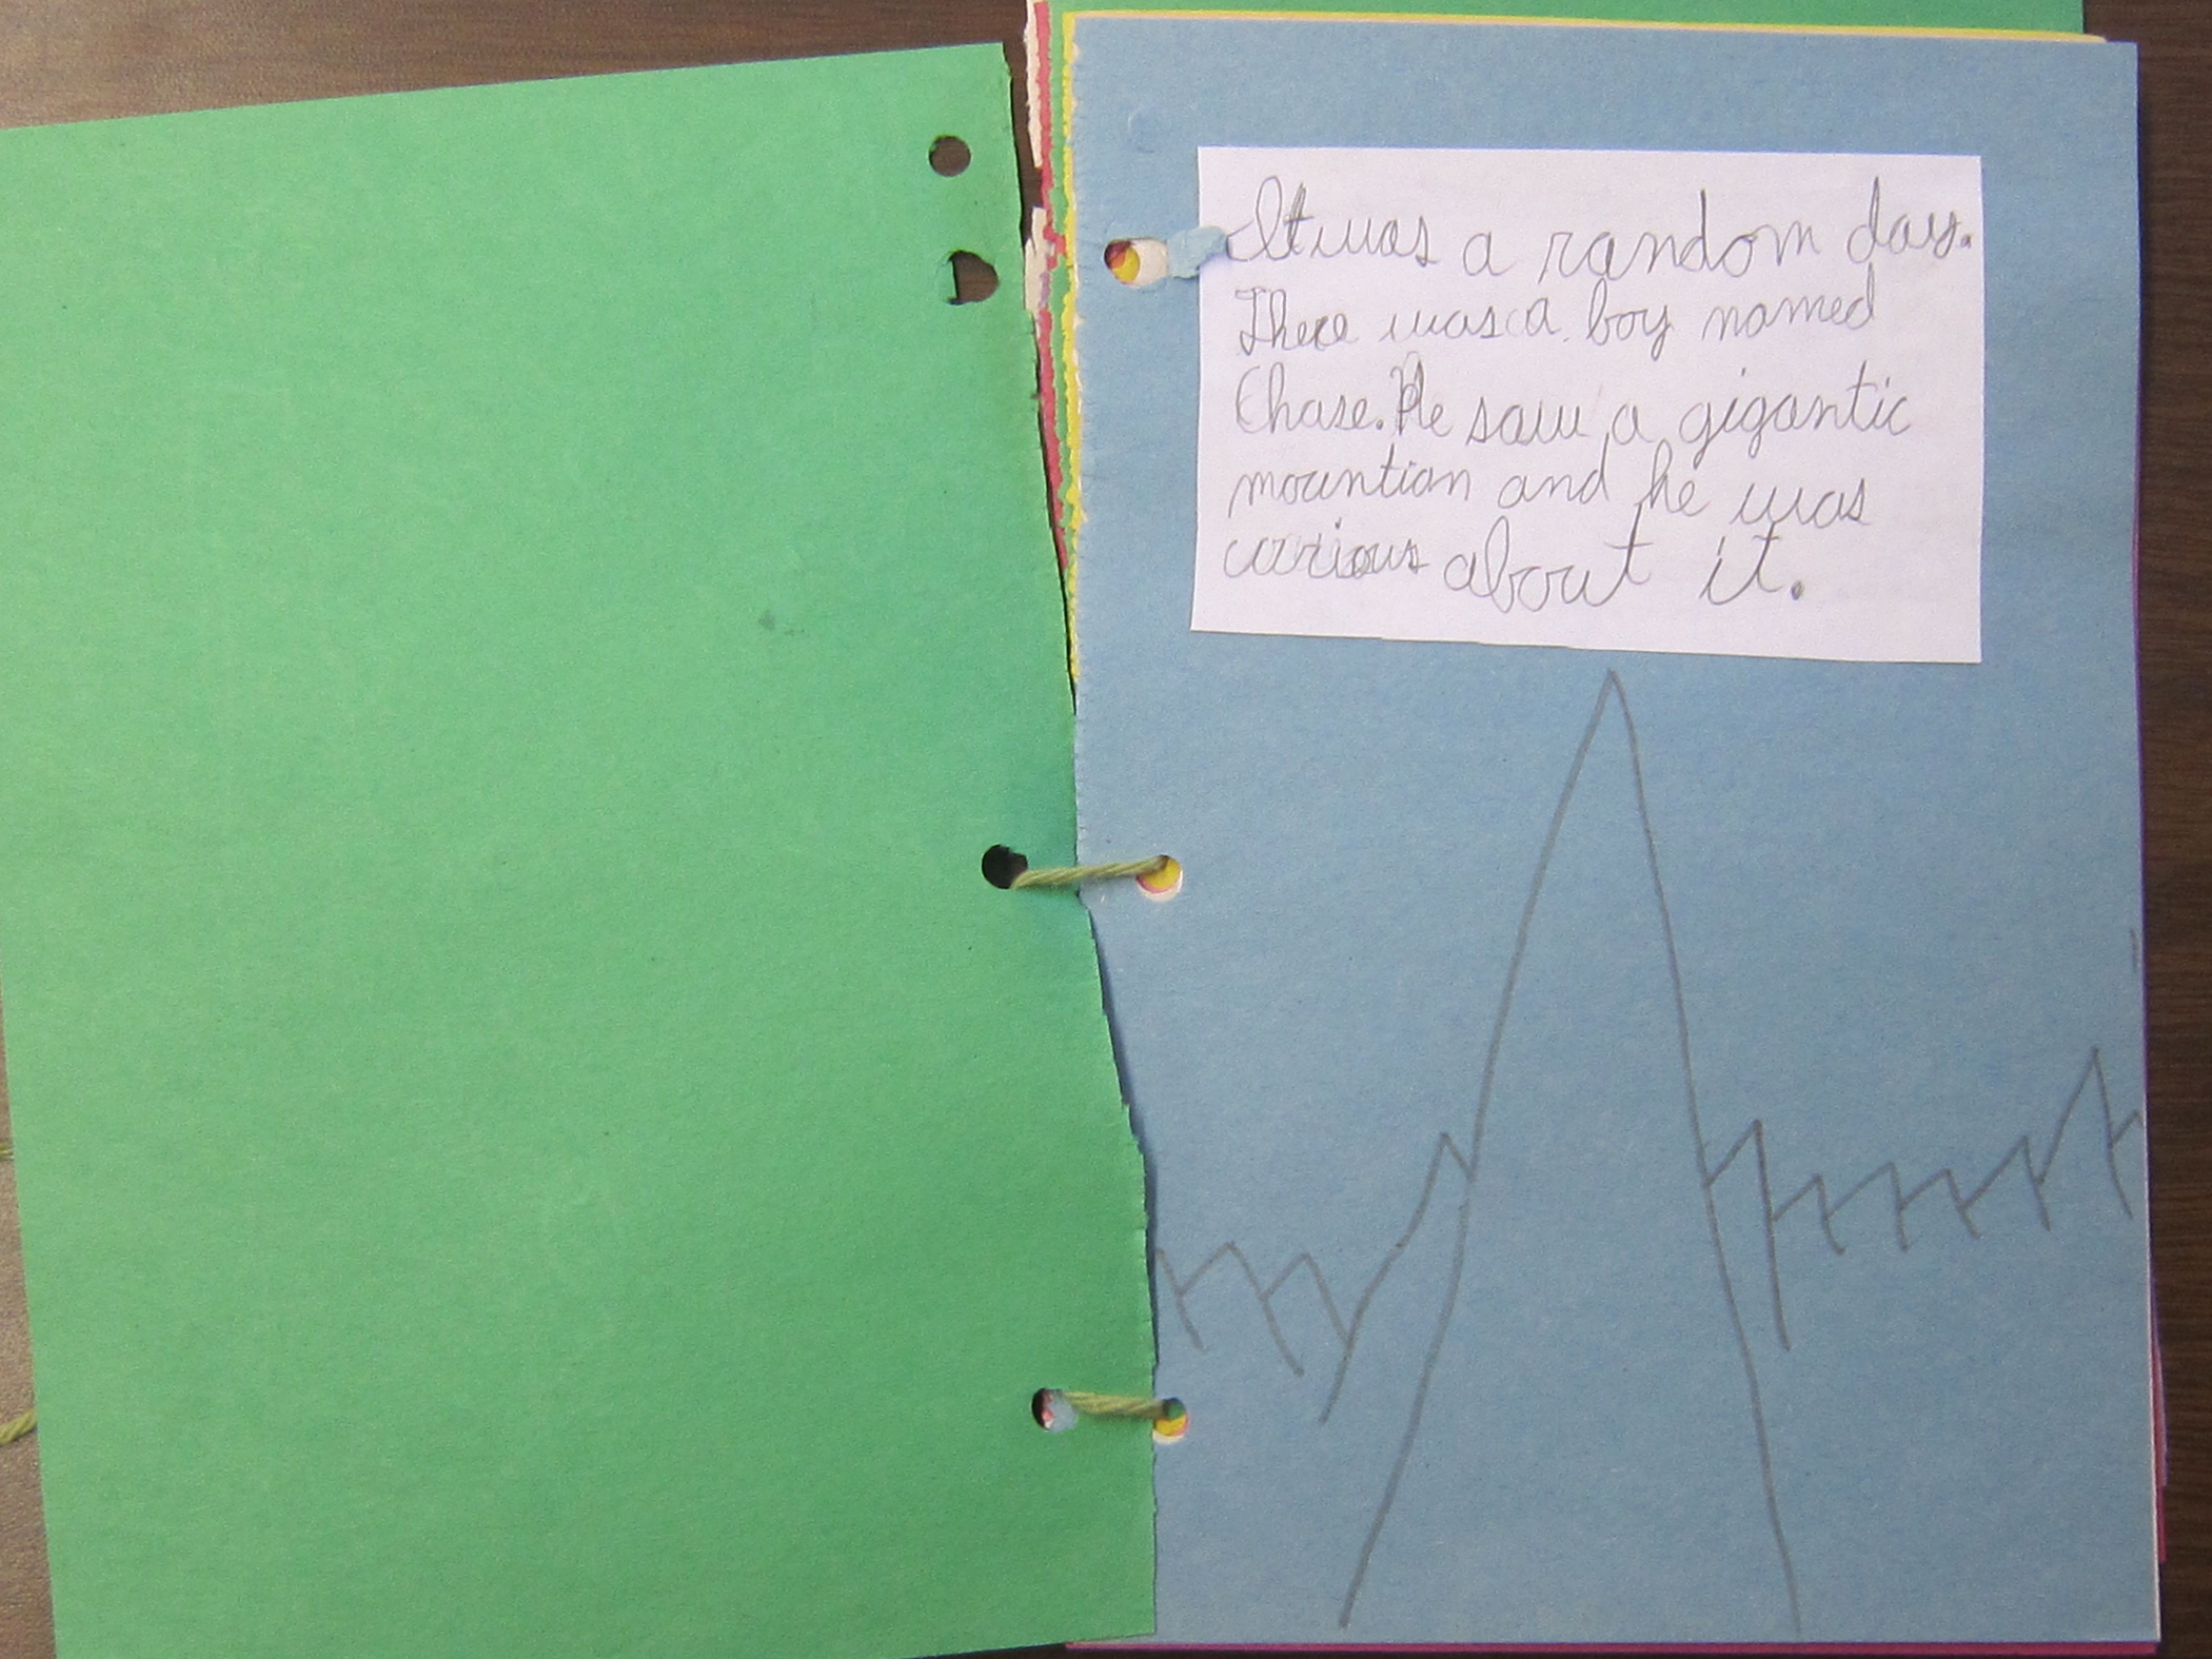 It was a random day.
There was a boy named
Chase. He saw a gigantic
mountian and he was
curious about it.